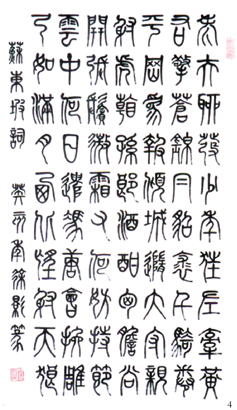 老夫聊發少年狂左牽黃
右擎蒼錦帽貂裘千騎卷
平岡為報傾城隨太守親
射虎看孫郎酒酣胸膽尚
開張鬢微霜又何妨持節
雲中何日遣馮唐會挽雕
弓如滿月西北望射天狼
蘇東坡詞 篆
4